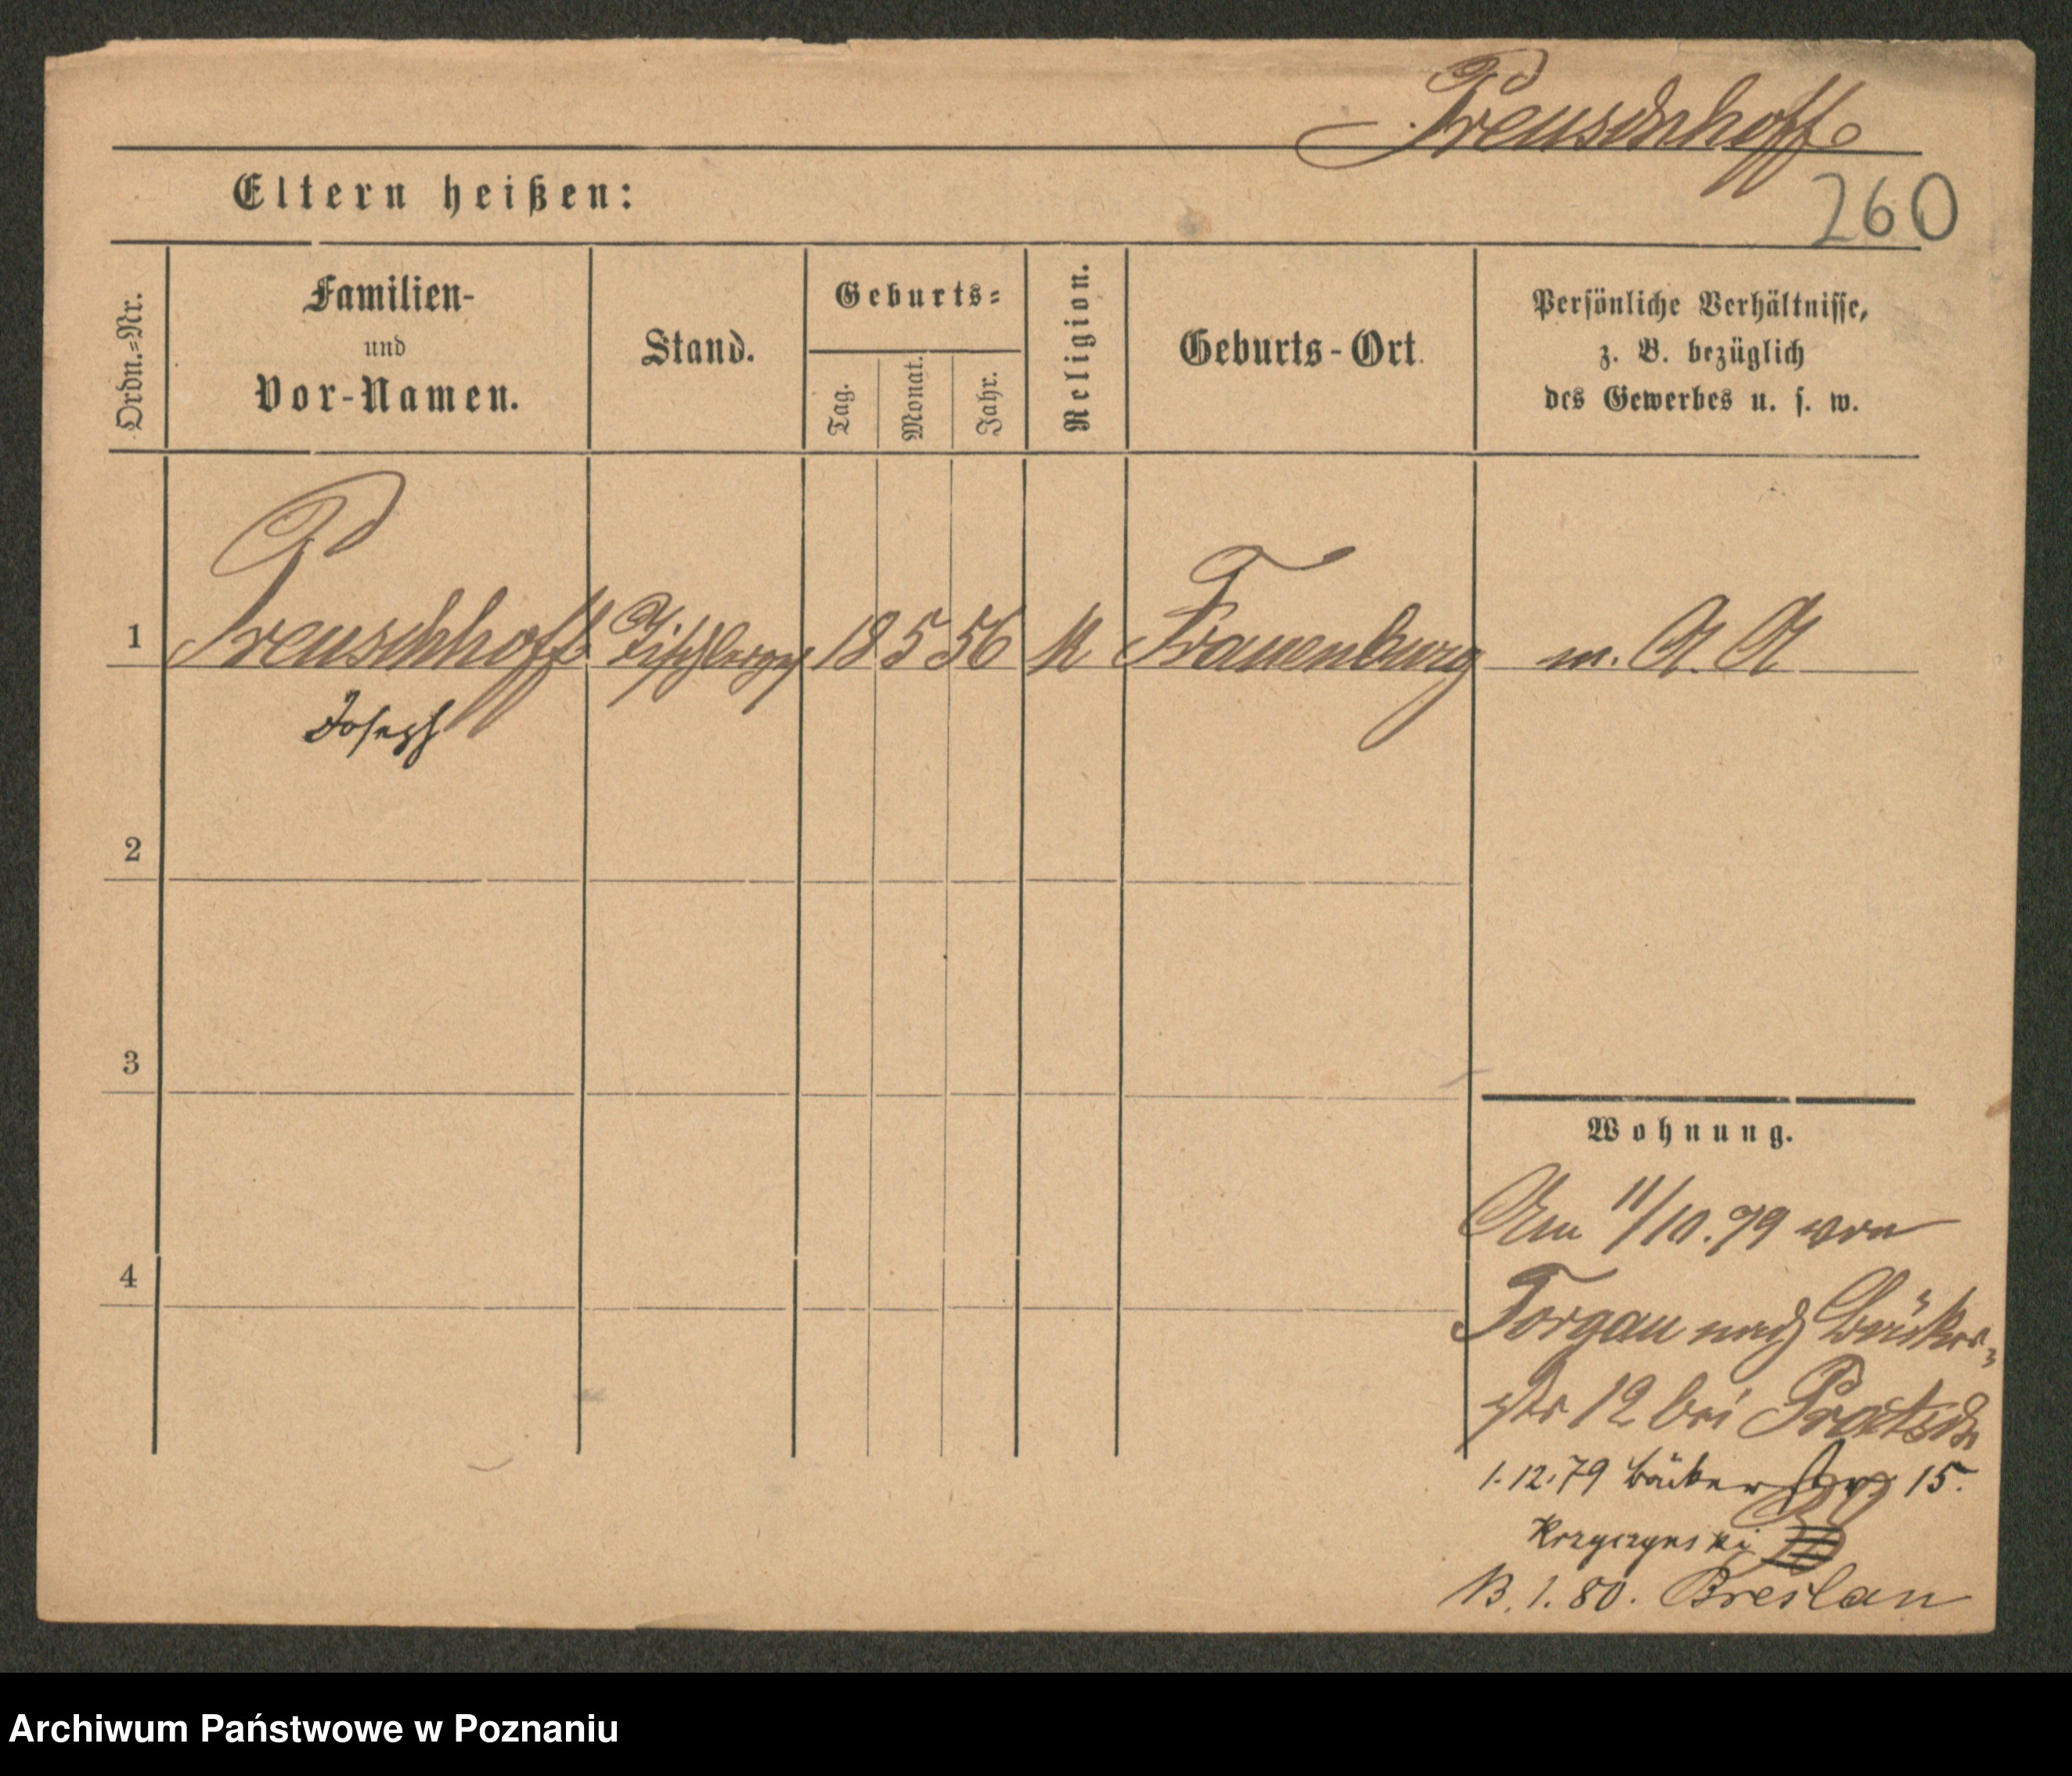 Preuschhoff
260
Eltern heißen:
Ordn.=Nr.
Familien-
und
Vor-Namen.
Stand.
Geburts=
Tag.
Monat.
Jahr.
Religion.
Geburts-Ort
Persönliche Verhältnisse,
z. B. bezüglich
des Gewerbes u. s. w.
1 Preuschhoff Tischlerges 18 5 56 K Frauenburg m. A. A
Joseph
2
3
4
Wohnung.
Am 11/10.79 von
Torgau nach Bäcker=
str 12 bei
1.12.79 Bäckerstr. 15.
13.1.80. Breslau
Archiwum Państwowe w Poznaniu